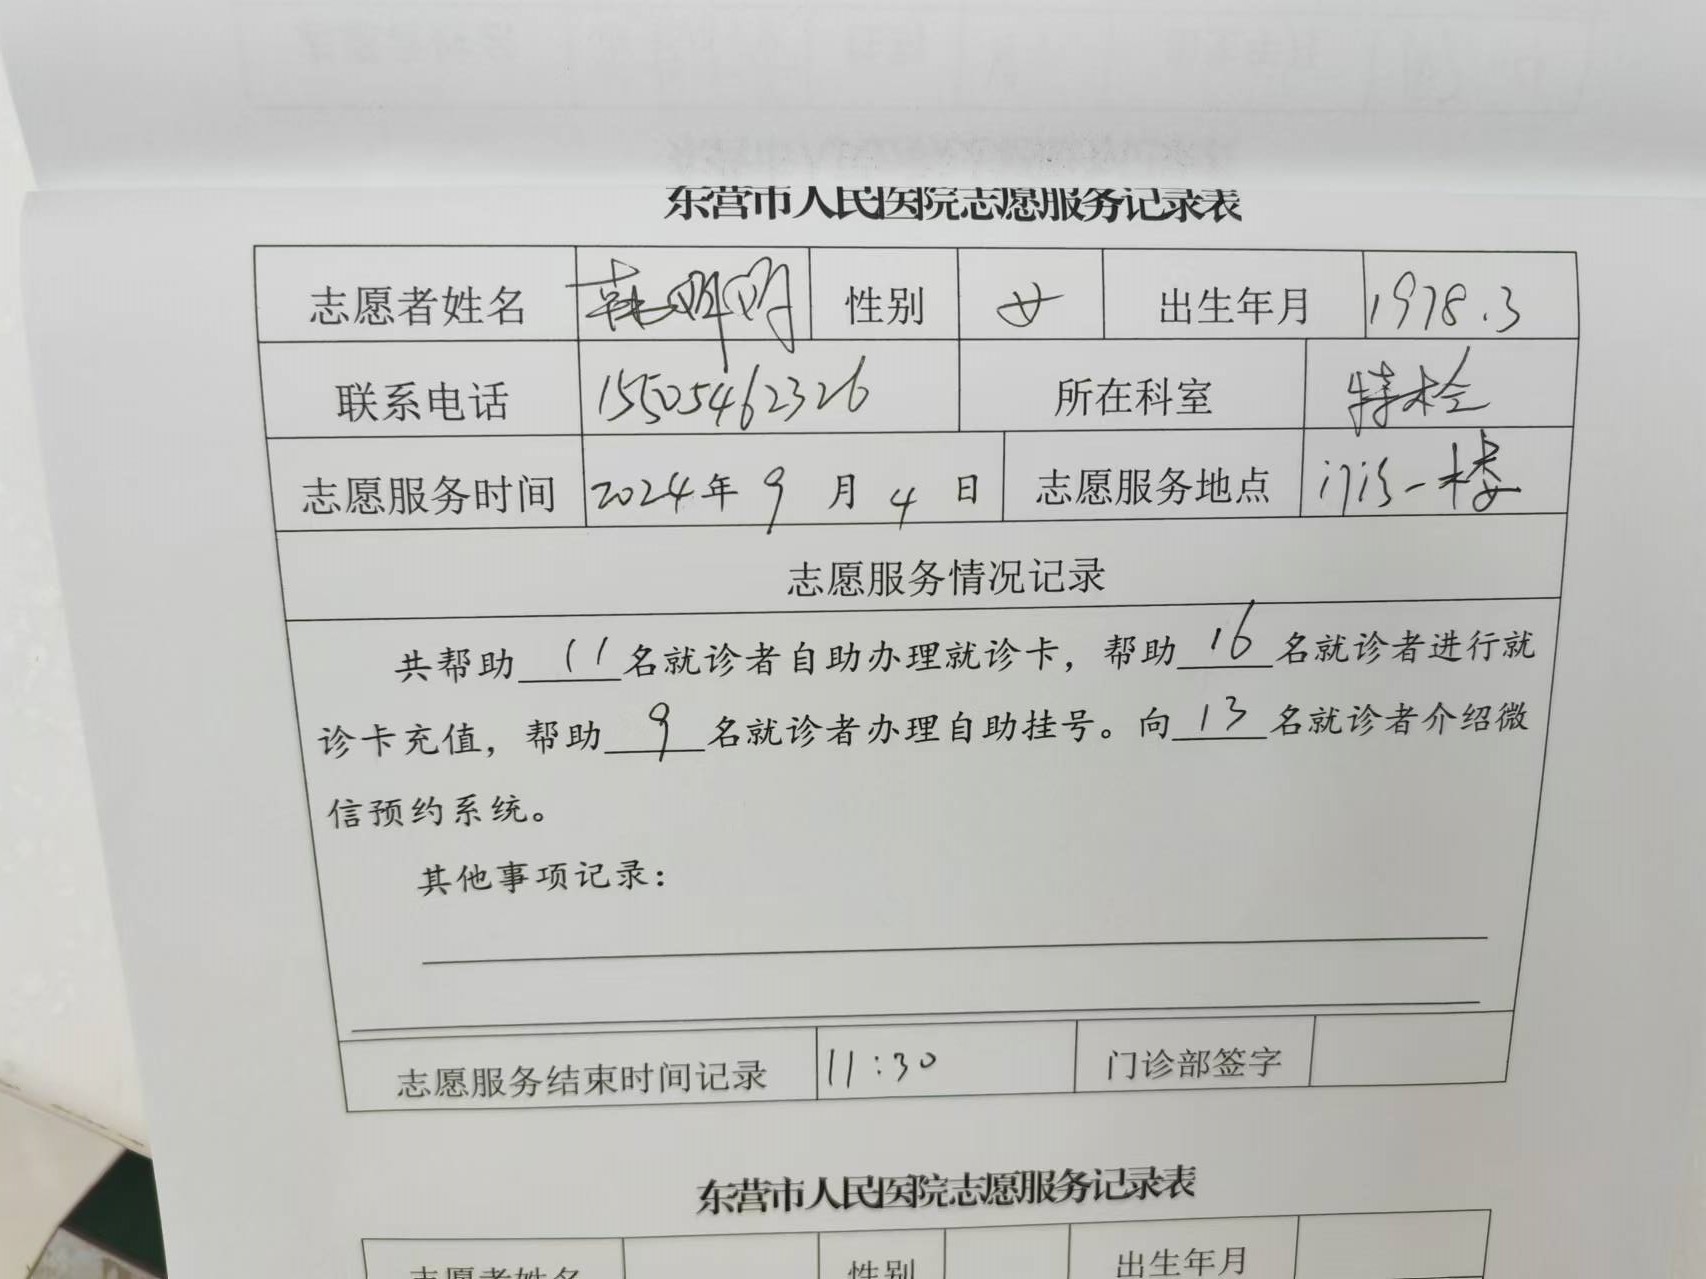 东营市人民医院志愿服务记录表
志愿者姓名 性别 女 出生年月 1978.3
联系电话 15505462326 所在科室 特检
志愿服务时间 2024年 9 月 4 日 志愿服务地点 门诊一楼
志愿服务情况记录
共帮助 11 名就诊者自助办理就诊卡，帮助 16 名就诊者进行就
诊卡充值，帮助 9 名就诊者办理自助挂号。向 13 名就诊者介绍微
信预约系统。
其他事项记录：
志愿服务结束时间记录 11:30 门诊部签字
东营市人民医院志愿服务记录表
志愿者姓名 性别 出生年月